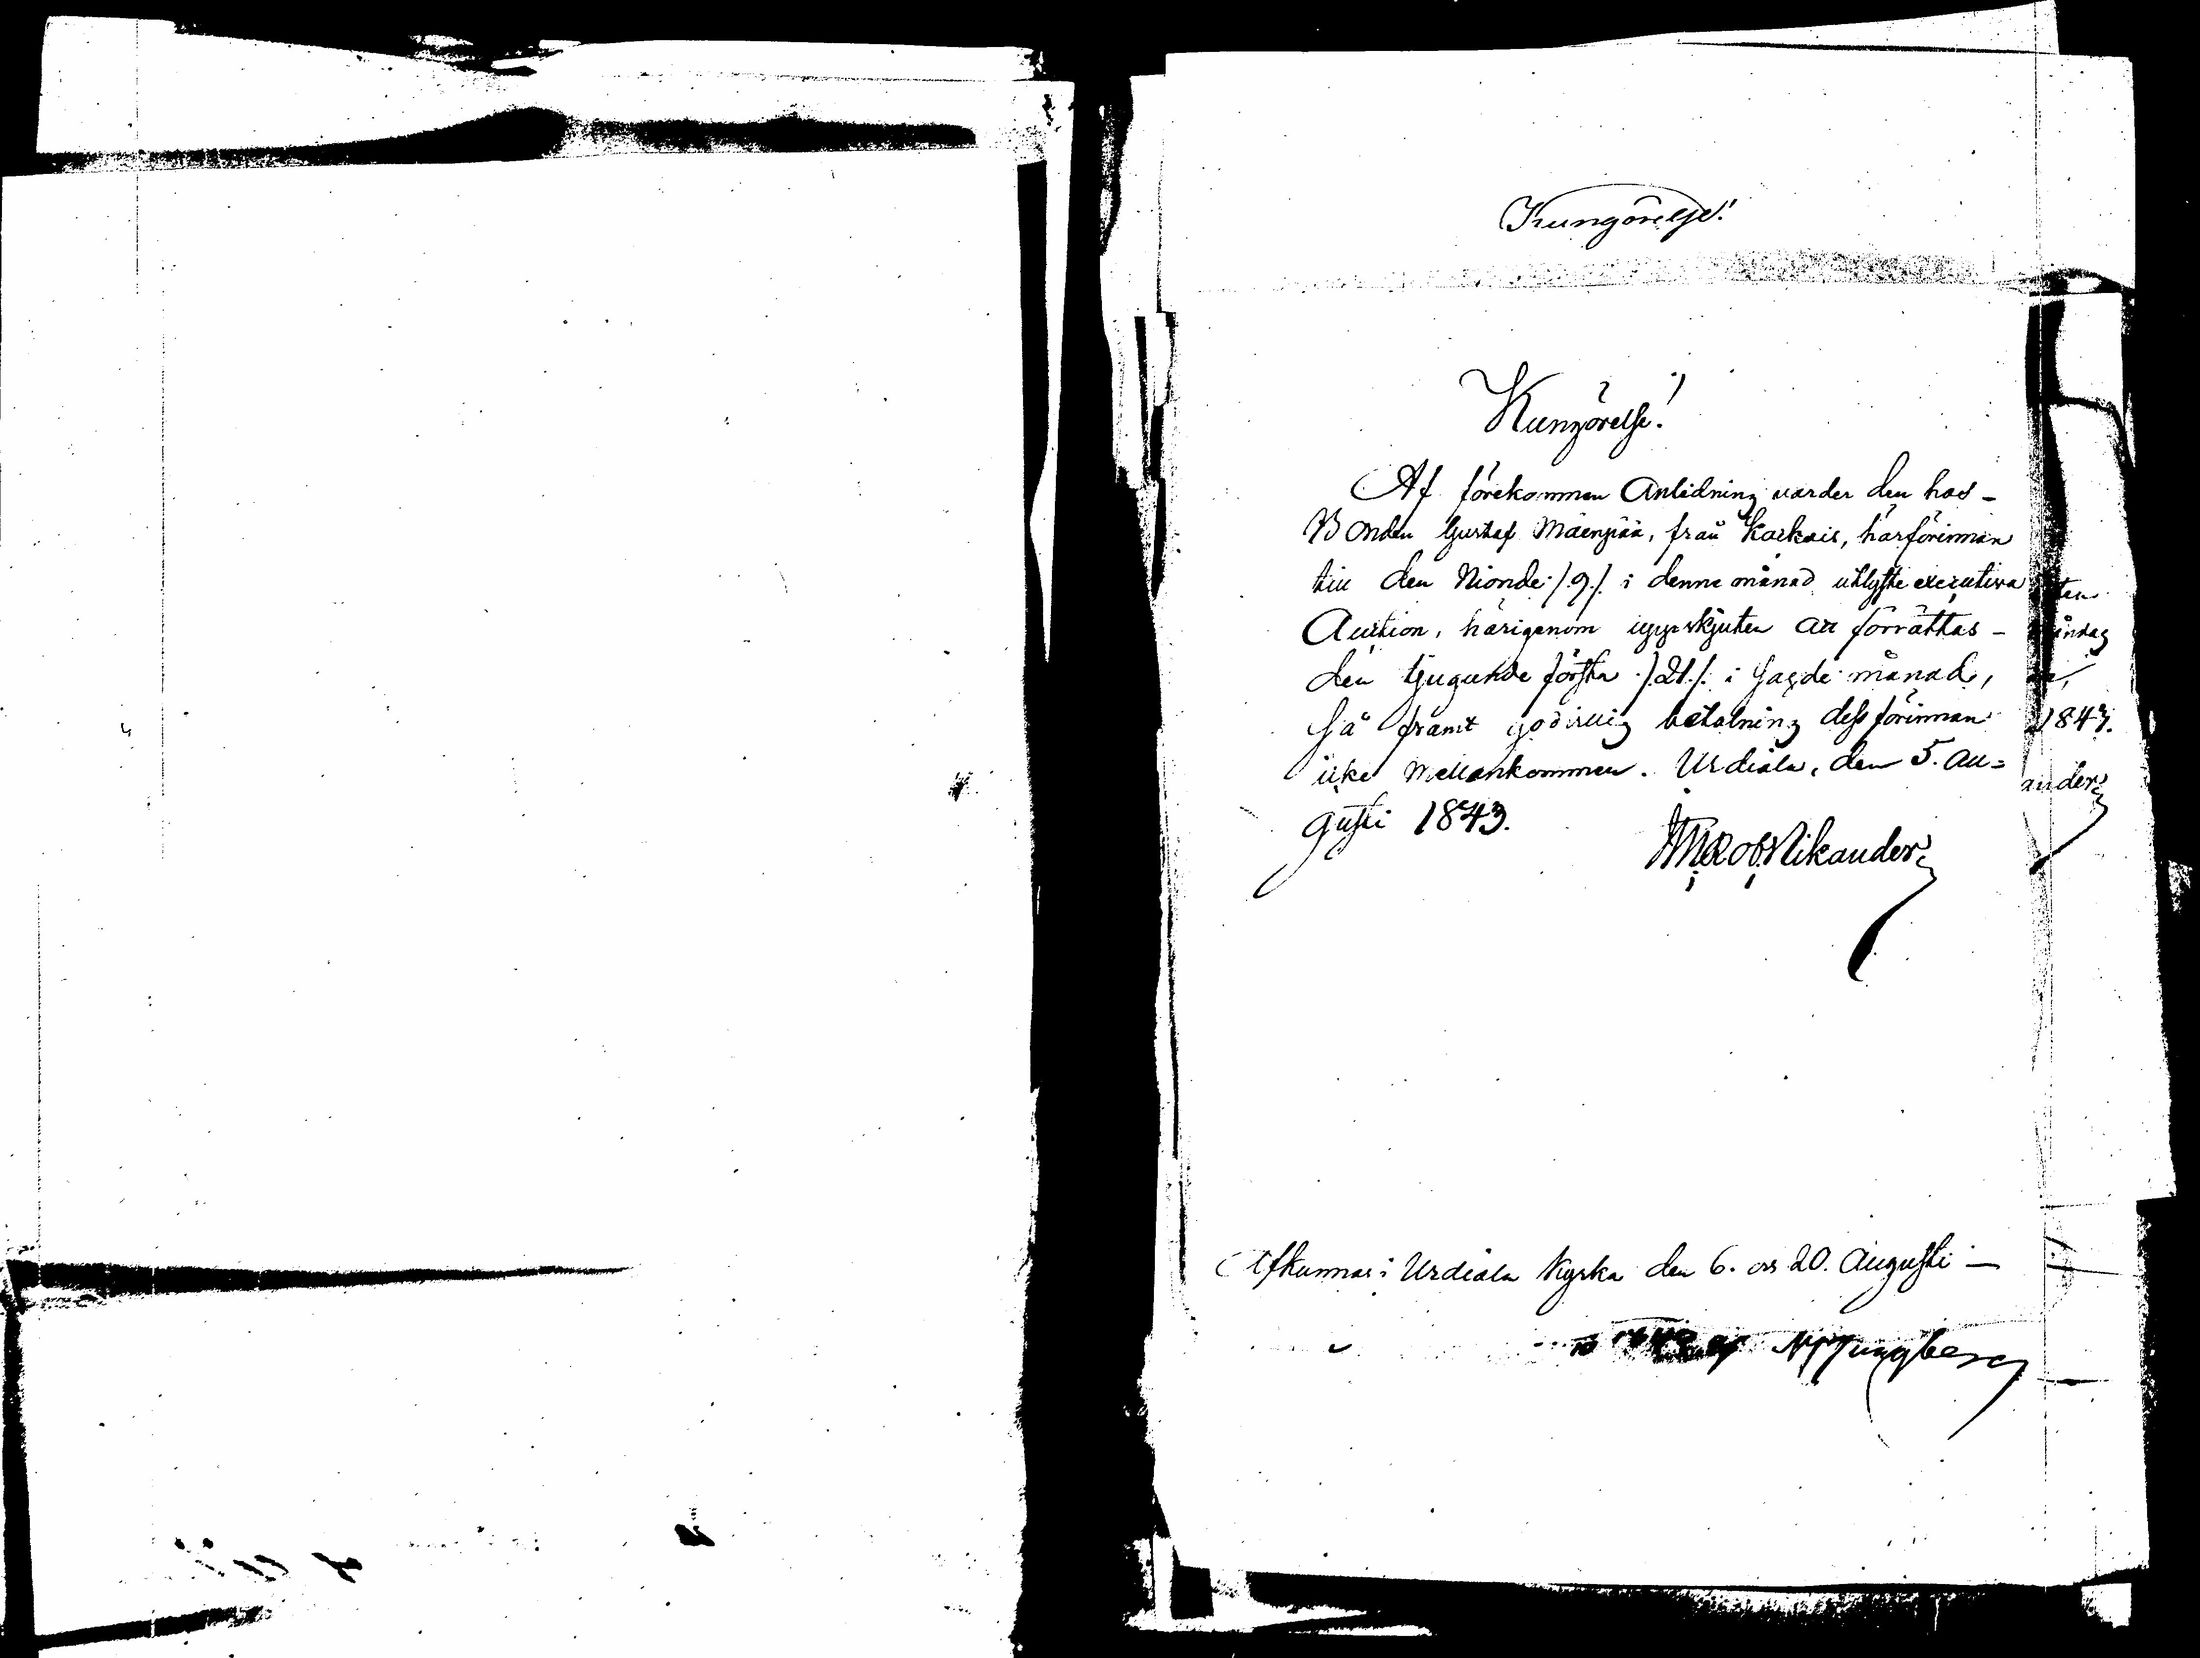 Kungörelse!
Kungörelse!
Af förekommen Anledning varder den hos -
Bonden Gustaf Mäenpää, från Kaekais, härförinnan
till den Nionde /:9:/ i denne månad utlyste executiva
Auction, härigenom uppskjuten att förrättas -
den tjugunde första /:21:/ i sagde månad,
så framt godvillig betalning dessförinnan
icke mellankommer. Urdiala, den 5. Au=
gusti 1843.
Nikander
ten
åndag
1843.
ander
Afkunnas i Urdiala Kyrka den 6. och 20. Augusti -
1843 af Ljungberg